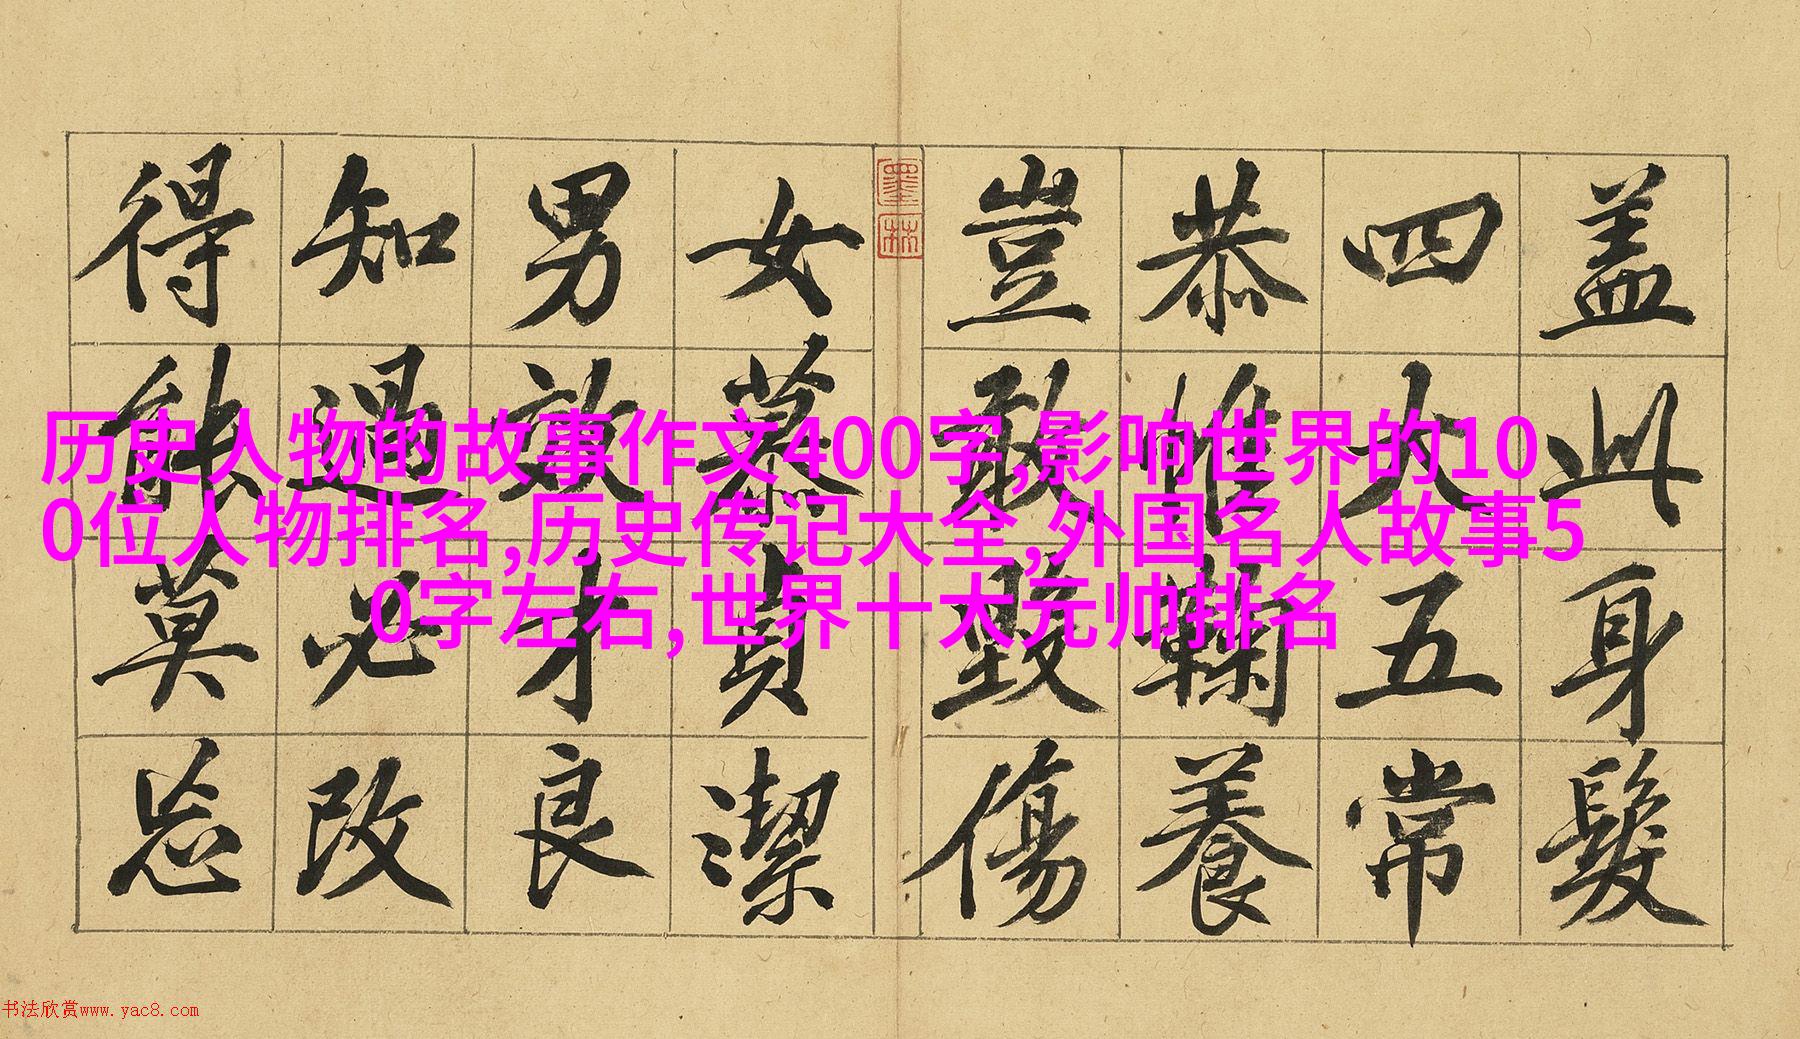 盖此身髮
四大五常
恭惟鞠養
豈敢毀傷
墨林
女慕貞潔
男效才良
知過必改
得能莫忘
历史人物的故事作文400字,影响世界的10
0位人物排名,历史传记大全,外国名人故事5
0字左右,世界十大元帅排名
书法欣赏www.yac8.com